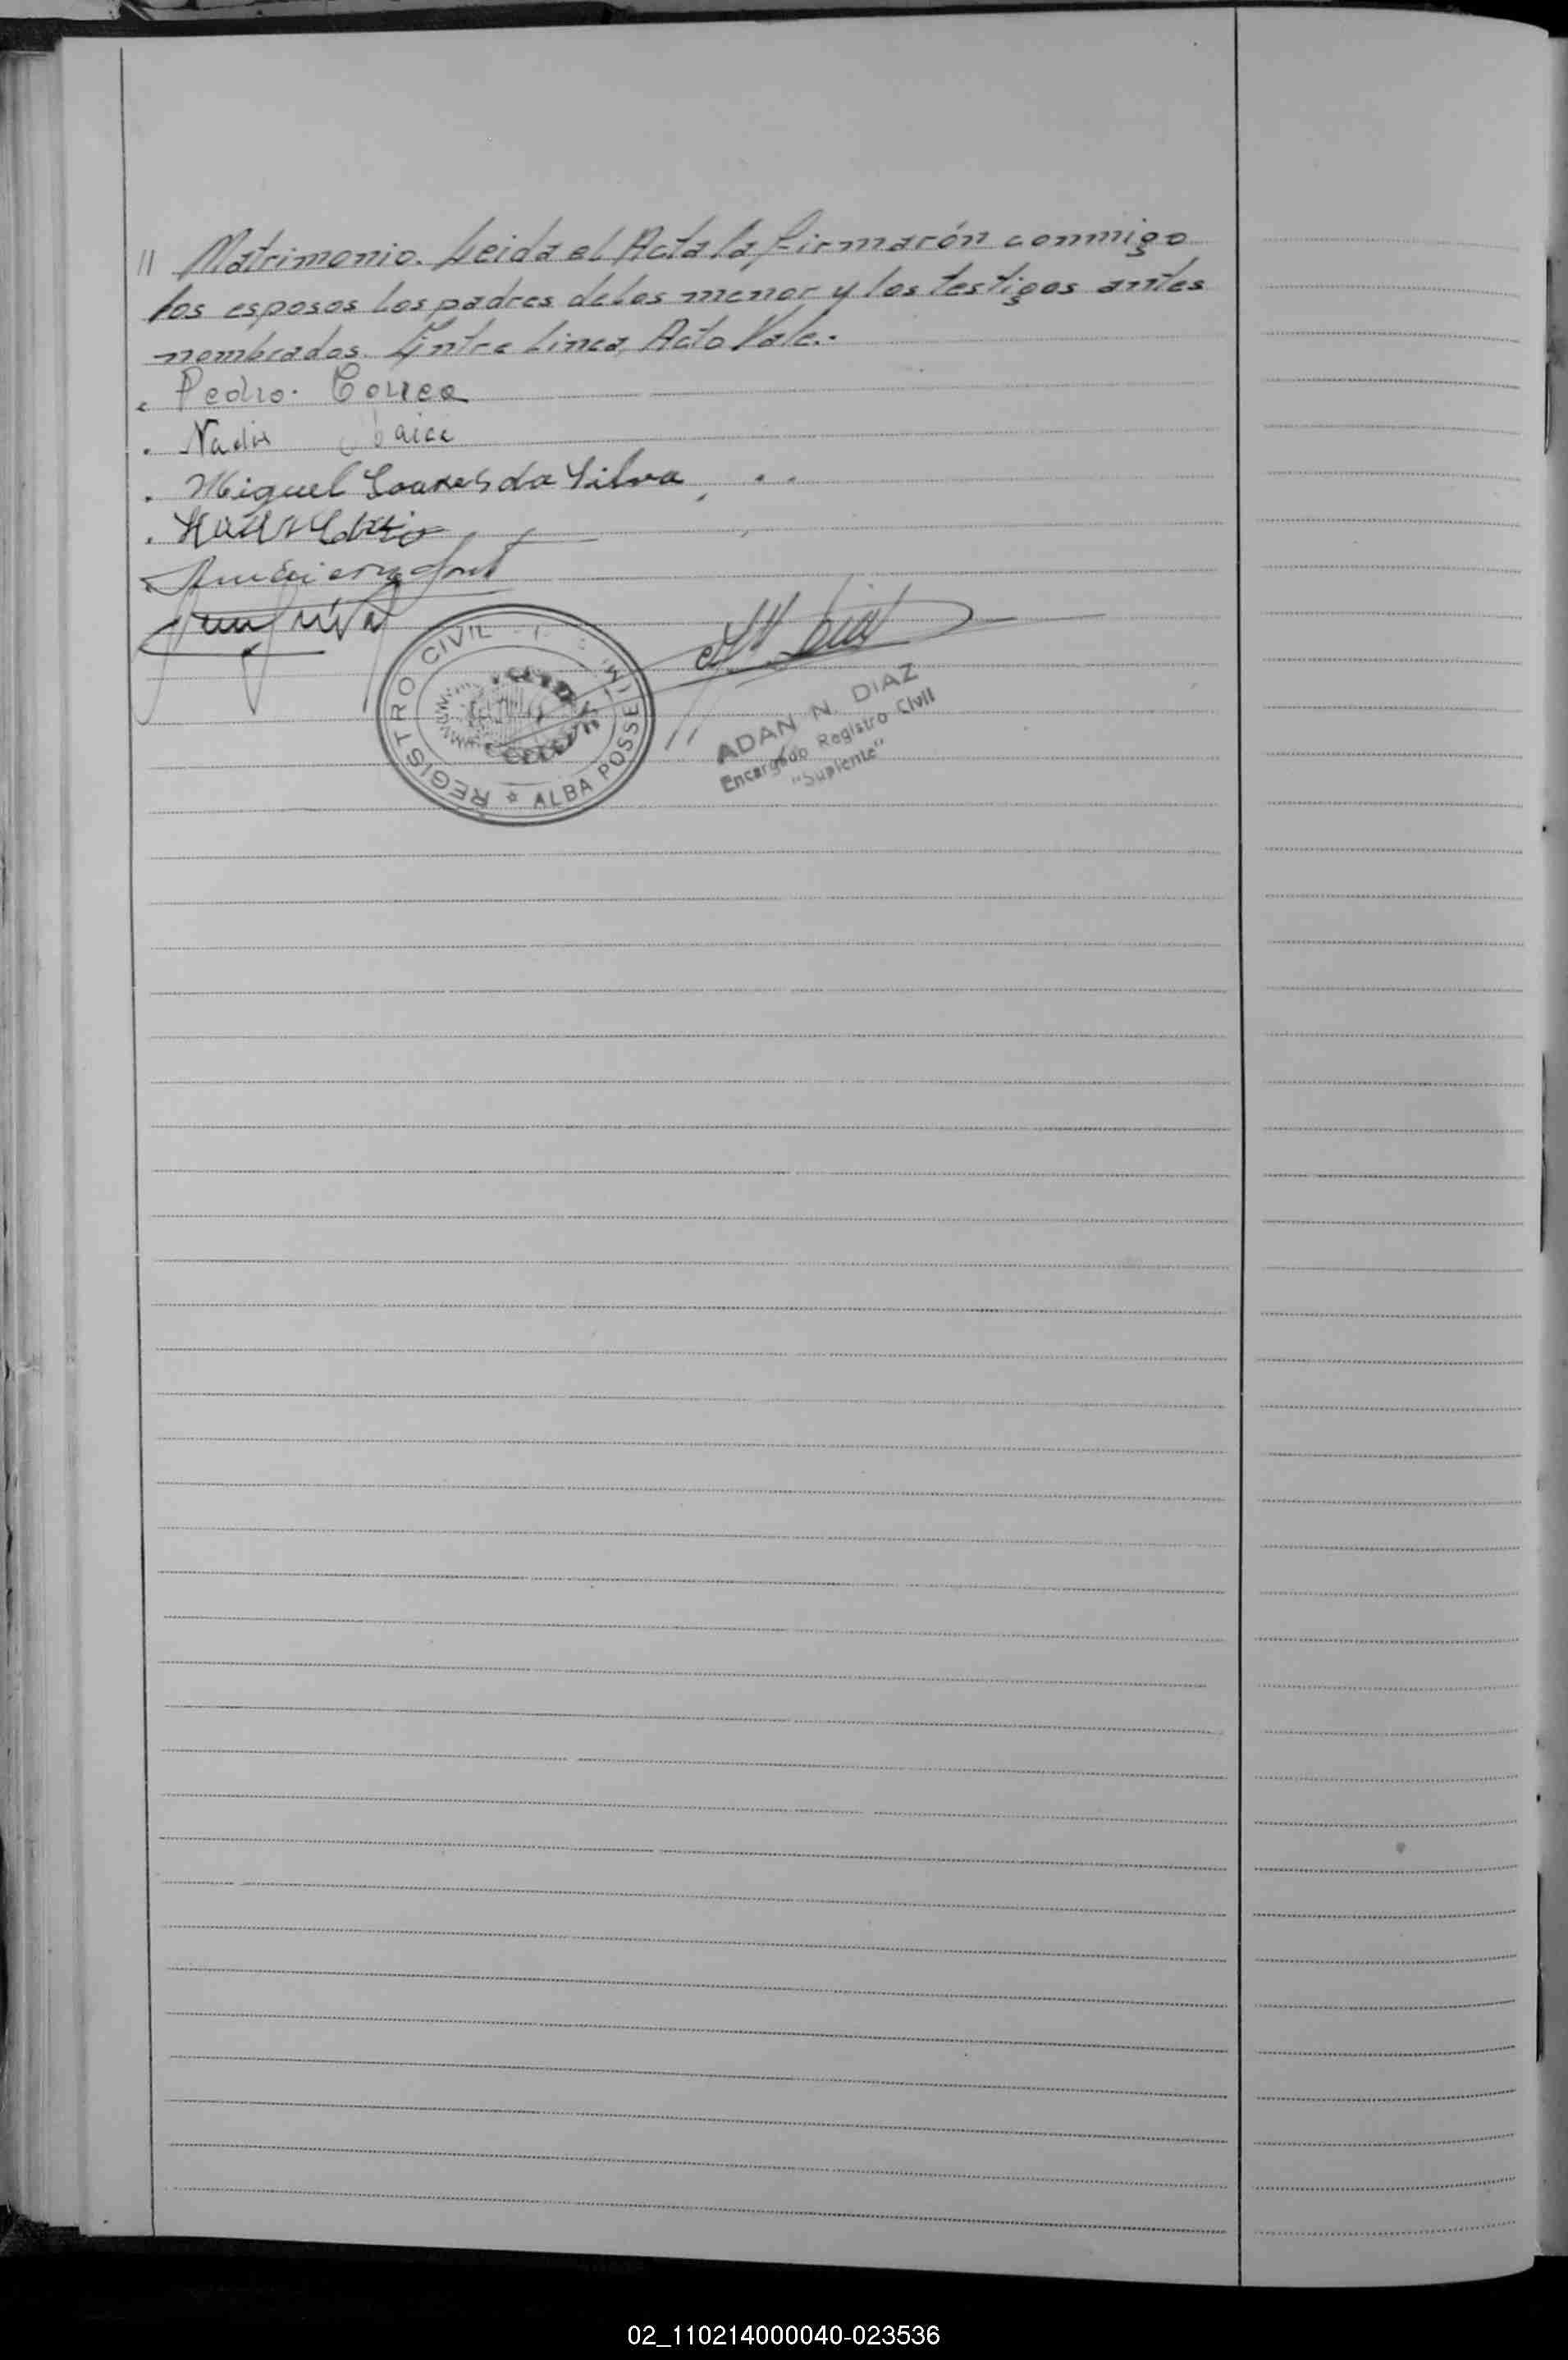 // Matrimonio. Leida el Acta la firmarón conmigo
los esposos los padres de los menor y los testigos antes
nombrados. Entre Linea, Acto Vale.-
Pedro. Correa
Nadir
Miguel Soares da Silva
REGISTRO CIVIL
ALBA POSSE
ADAN N. DIAZ
Encargado Registro Civil
"Suplente"
02_110214000040-023536